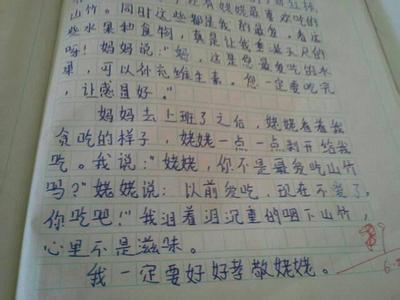 还有姥姥最喜欢吃的
山竹。同时这些都是我的最爱,看这
些水果和食物,真是让我垂涎三尺
呀!妈妈说:“妈,这是您最爱吃的水
果,可以补充维生素。您一定要吃完
,让感冒好。”
妈妈去上班了之后,姥姥看着我
贪吃的样子,姥姥一点一点剥开给我
吃。我说:“姥姥,你不是最爱吃山竹
吗?”姥姥说:以前爱吃,现在不爱了,
你吃吧!”我泪着泪沉重的咽下山竹,
心里不是滋味。
我一定要好好孝敬姥姥。